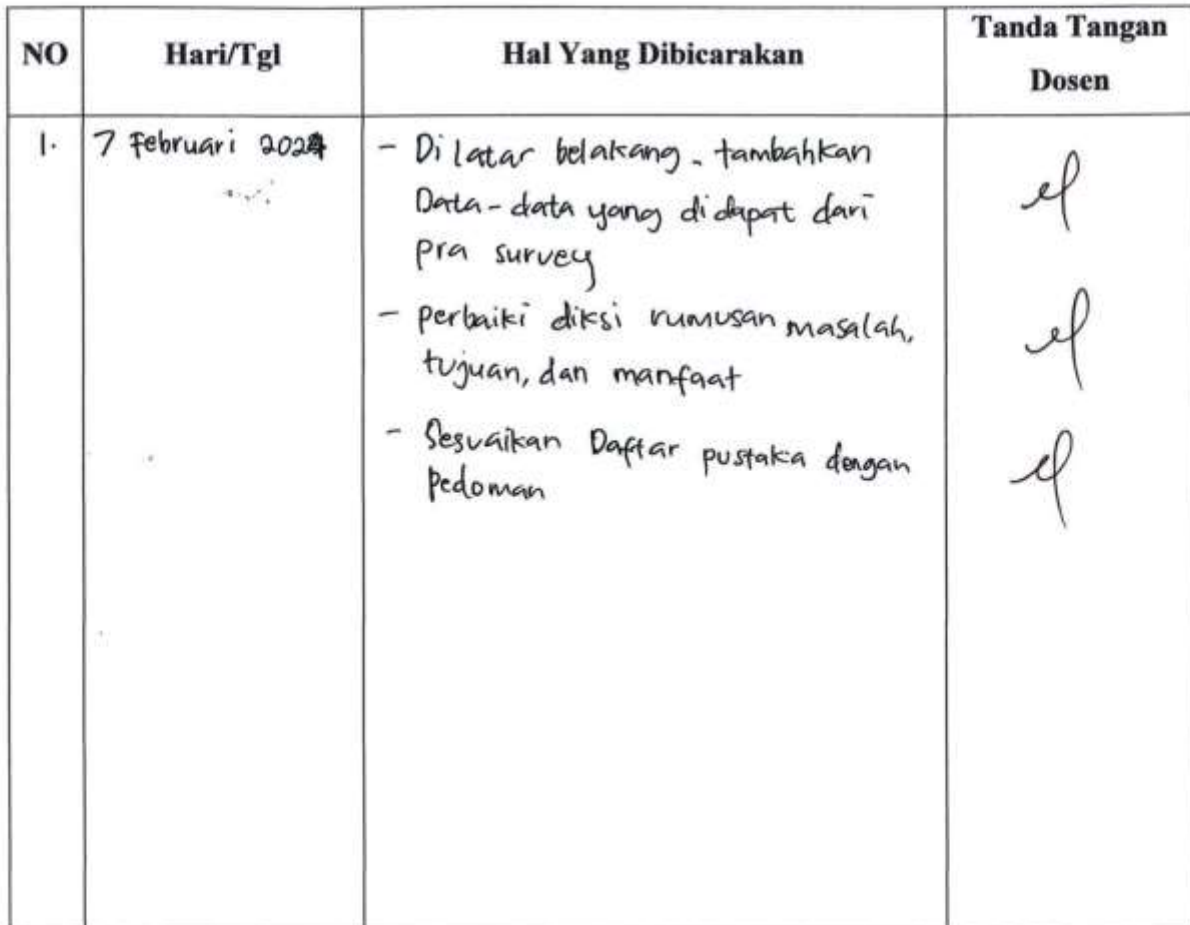 NO Hari/Tgl Hal Yang Dibicarakan Tanda Tangan
Dosen
1. 7 Februari 2024 - Di latar belakang. tambahkan
Data-data yang didapat dari
pra survey
- perbaiki diksi rumusan masalah,
tujuan, dan manfaat
- Sesuaikan Daftar pustaka dengan
Pedoman